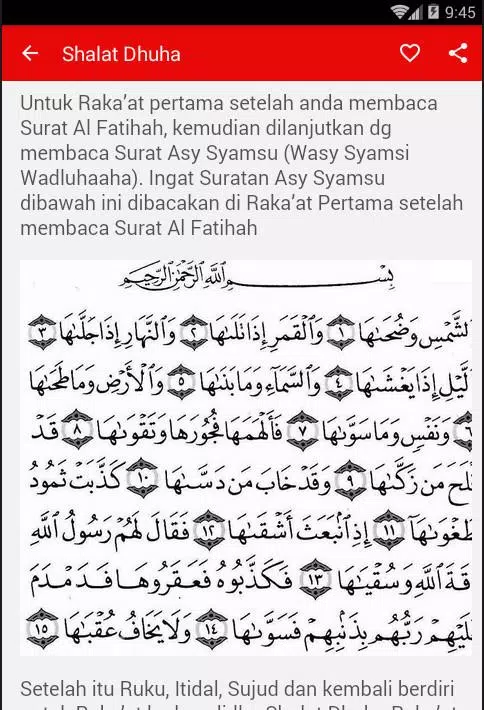 9:45
Shalat Dhuha
Untuk Raka'at pertama setelah anda membaca
Surat Al Fatihah, kemudian dilanjutkan dg
membaca Surat Asy Syamsu (Wasy Syamsi
Wadluhaaha). Ingat Suratan Asy Syamsu
dibawah ini dibacakan di Raka'at Pertama setelah
membaca Surat Al Fatihah
بِسْمِ اللَّهِ الرَّحْمَٰنِ الرَّحِيمِ
لشَّمْسِ وَضُحَىٰهَا ١ وَٱلْقَمَرِ إِذَا تَلَىٰهَا ٢ وَٱلنَّهَارِ إِذَا جَلَّىٰهَا ٣
لَّيْلِ إِذَا يَغْشَىٰهَا ٤ وَٱلسَّمَآءِ وَمَا بَنَىٰهَا ٥ وَٱلْأَرْضِ وَمَا طَحَىٰهَا
٦ وَنَفْسٍ وَمَا سَوَّىٰهَا ٧ فَأَلْهَمَهَا فُجُورَهَا وَتَقْوَىٰهَا ٨ قَدْ
لَحَ مَن زَكَّىٰهَا ٩ وَقَدْ خَابَ مَن دَسَّىٰهَا ١٠ كَذَّبَتْ ثَمُودُ
طَغْوَىٰهَآ ١١ إِذِ ٱنۢبَعَثَ أَشْقَىٰهَا ١٢ فَقَالَ لَهُمْ رَسُولُ ٱللَّهِ
قَةَ ٱللَّهِ وَسُقْيَىٰهَا ١٣ فَكَذَّبُوهُ فَعَقَرُوهَا فَدَمْدَمَ
لَيْهِمْ رَبُّهُم بِذَنۢبِهِمْ فَسَوَّىٰهَا ١٤ وَلَا يَخَافُ عُقْبَىٰهَا ١٥
Setelah itu Ruku, Itidal, Sujud dan kembali berdiri